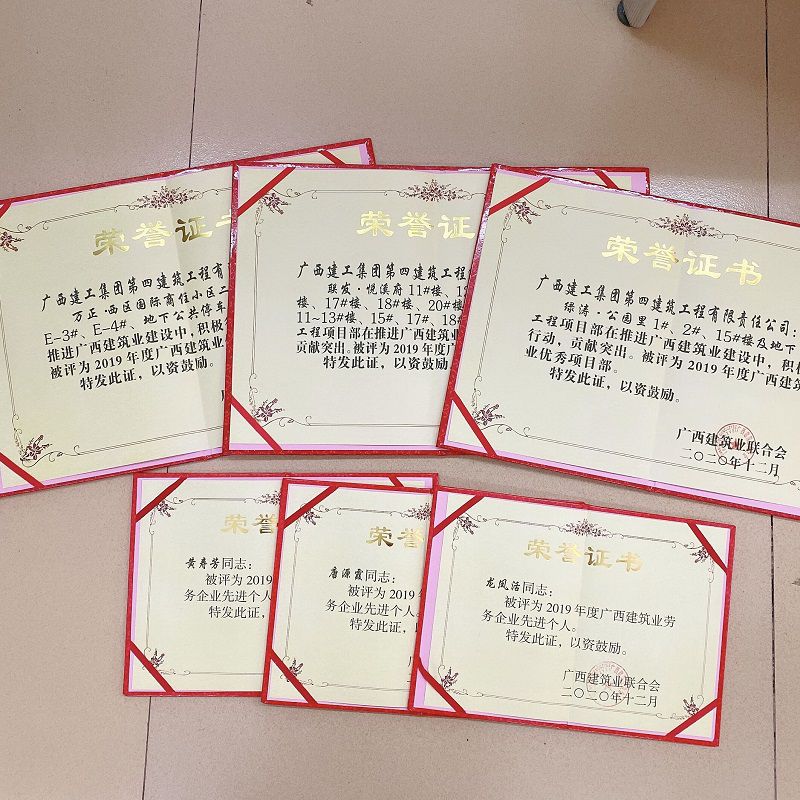 荣誉证书
广西建工集团第四建筑工程有
万正·西区国际商住小区二
E-3#、E-4#、地下公共停车
推进广西建筑业建设中，积极
被评为2019年度广西建筑业
特发此证，以资鼓励。
荣誉证
广西建工集团第四建筑工程
联发·悦溪府11#楼、12
楼、17#楼、18#楼、20#楼
11~13#楼、15#、17#、18#
工程项目部在推进广西建筑业
贡献突出。被评为2019年度广
特发此证，以资鼓励
荣誉证书
广西建工集团第四建筑工程有限责任公司：
绿涛·公园里1#、2#、15#楼及地下
工程项目部在推进广西建筑业建设中，积极
行动，贡献突出。被评为2019年度广西建筑
业优秀项目部。
特发此证，以资鼓励。
广西建筑业联合会
二〇二〇年十二月
荣誉
黄寿芳同志：
被评为2019
务企业先进个人
特发此证，
荣誉
唐源霞同志：
被评为2019年
务企业先进个人。
特发此证，以
荣誉证书
龙凤活同志：
被评为2019年度广西建筑业劳
务企业先进个人。
特发此证，以资鼓励。
广西建筑业联合会
二〇二〇年十二月